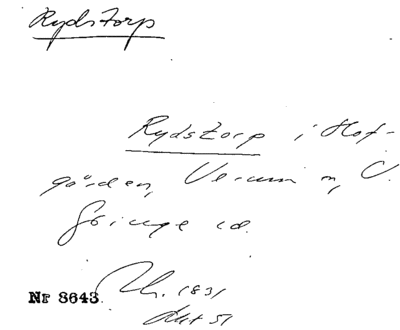 Rydstorp
Rydstorp i Hof-
gården, Verum sn, V.
Göinge hd.
Nr 8643. 1831